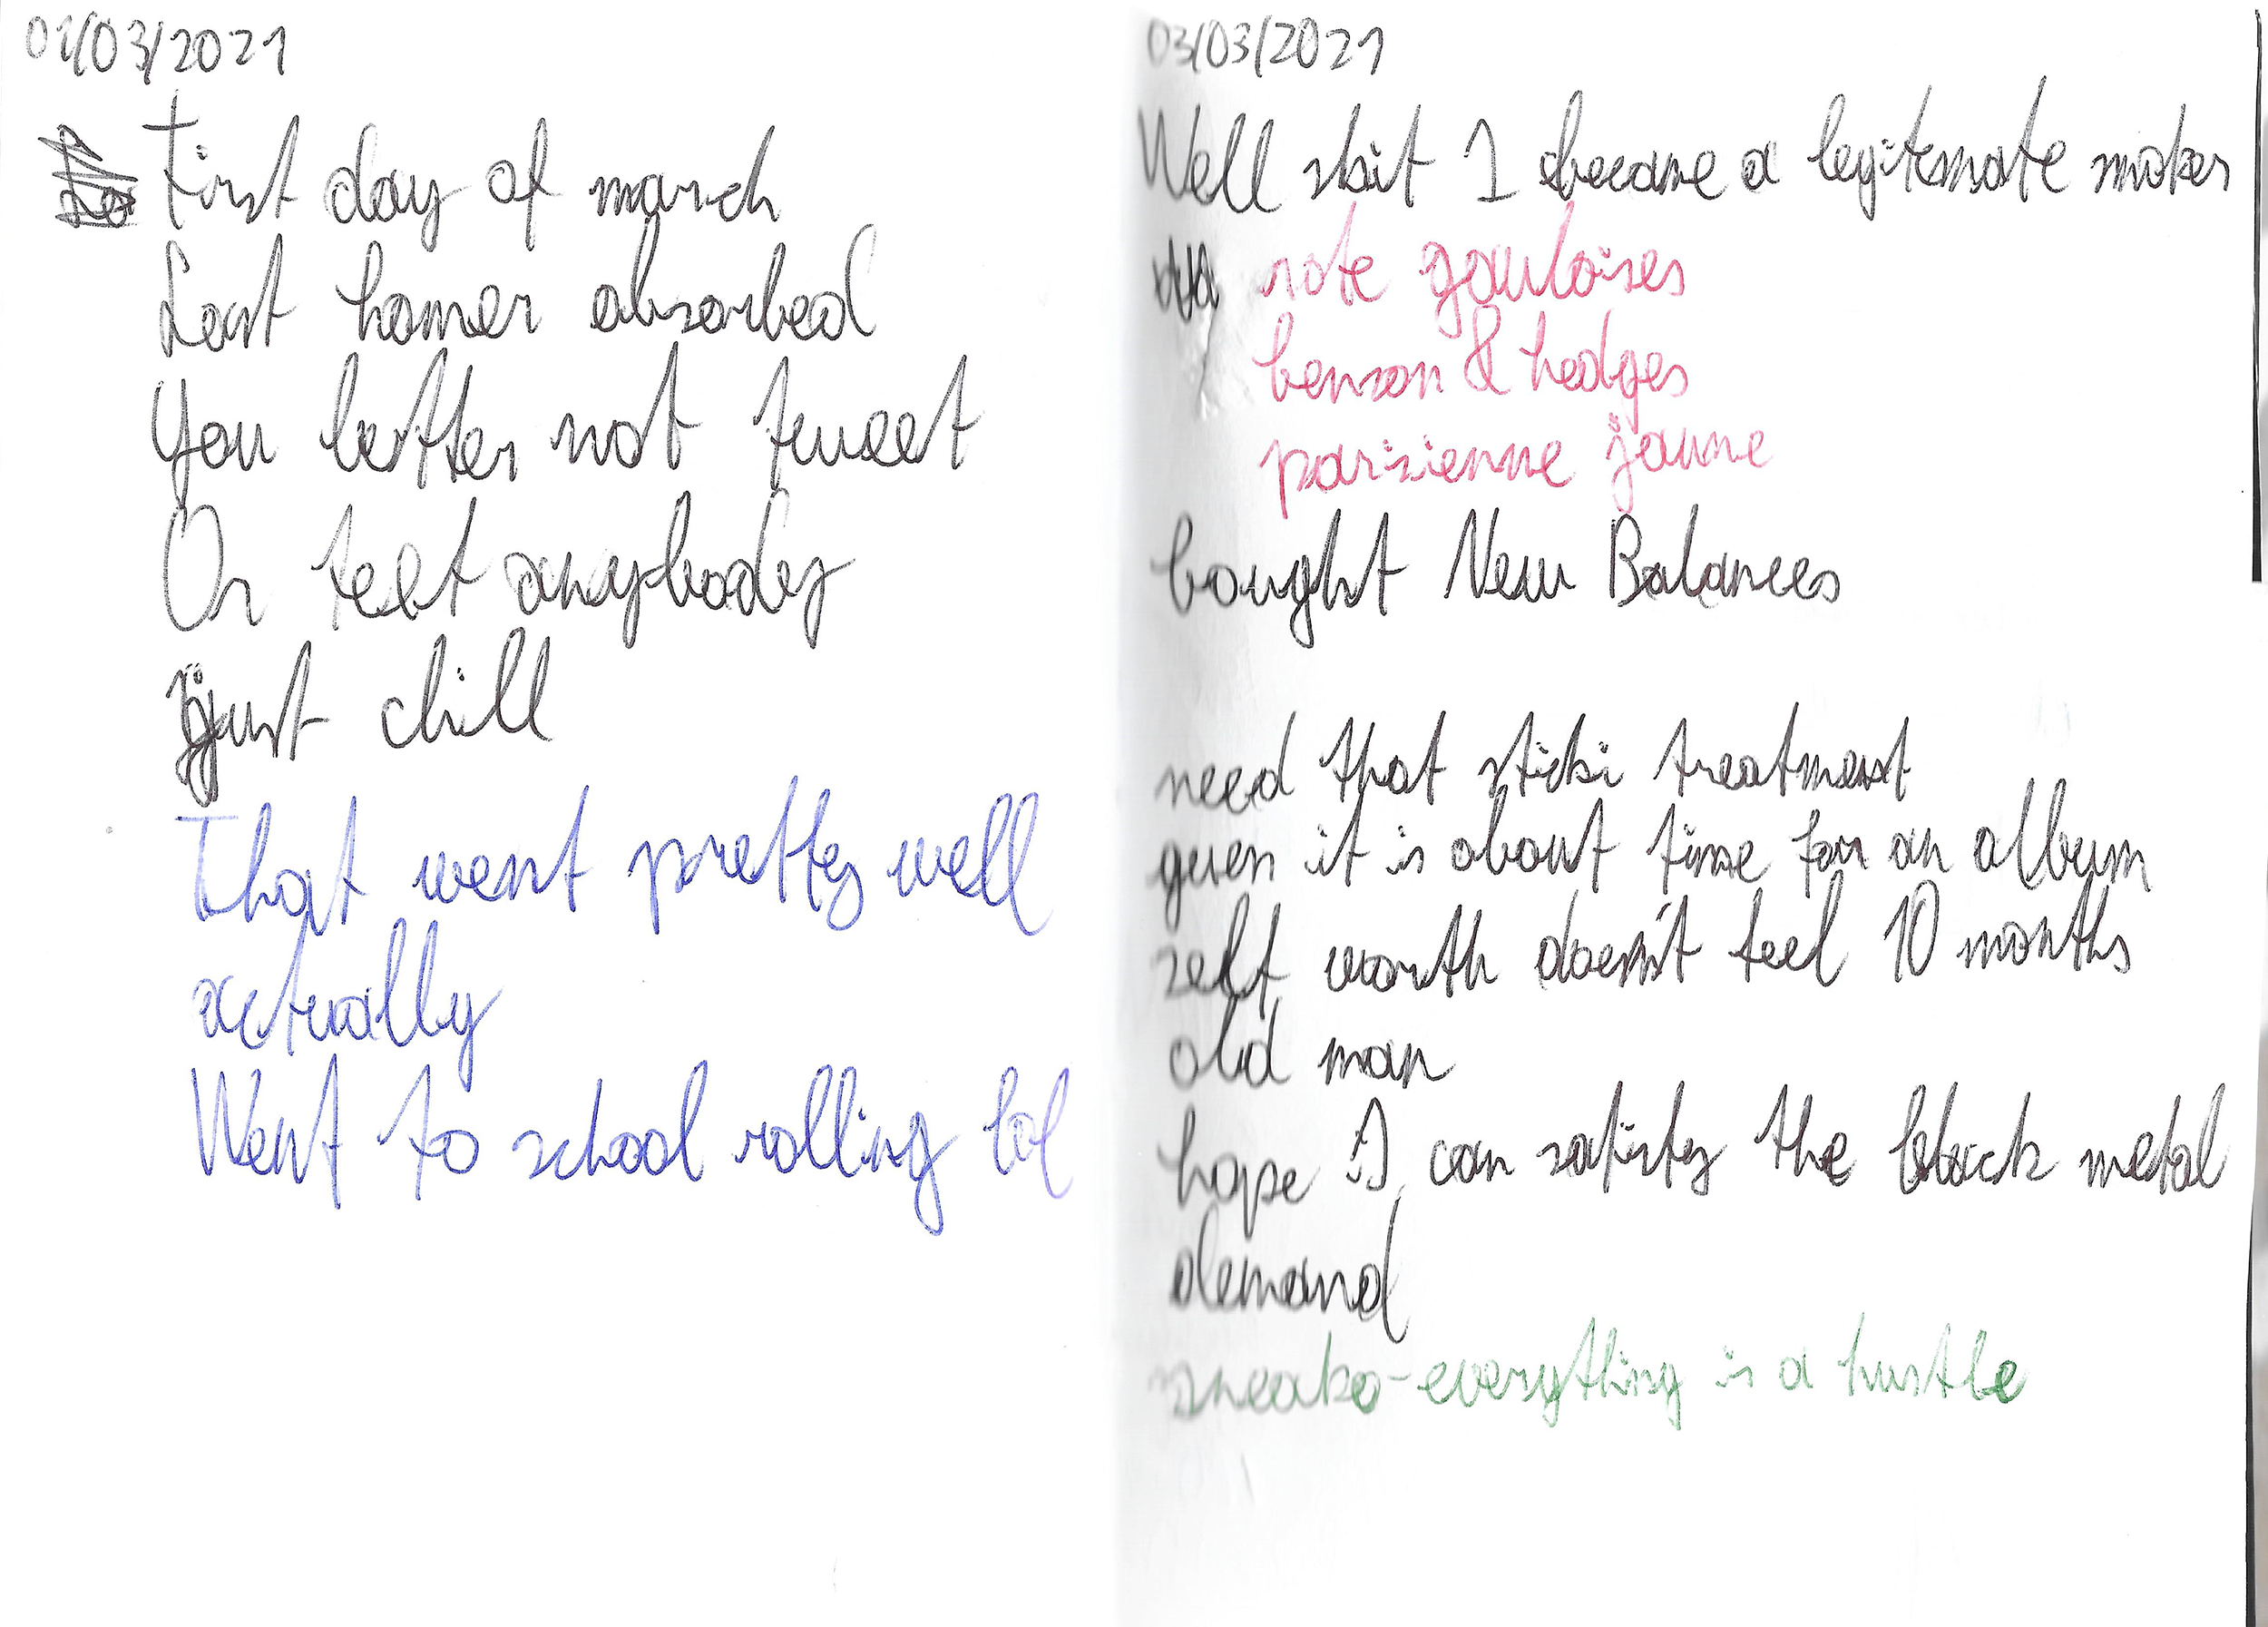 01/03/2021
First day of march
Last homer absorbed
You better not tweet
Or text anybody
just chill
That went pretty well
actually
Went to school rolling lol
03/03/2021
Well shit I became a legitemate smoker
rote gauloises
benson & hedges
parisienne jaune
bought New Balances
need that sticki treatment
guess it is about time for an album
self worth doesn't feel 10 months
old man
hope I can satisfy the black metal
demand
sneako - everything is a hustle